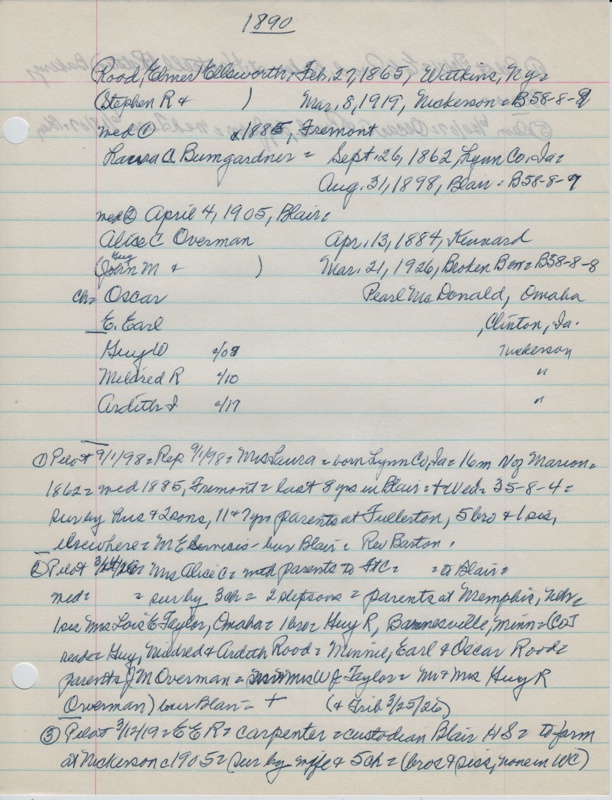 1890
Rood, Elmer Ellsworth, Feb. 27, 1865, Watkins, Ny=
(Stephen R + ) Mar. 8, 1919, Nickerson = B58-8-9
med ① 1885, Fremont
Laura A Bumgardner = Sept. 26, 1862, Lynn Co, Ia=
Aug. 31, 1898, Blair = B58-8-9
med ② April 4, 1905, Blair=
Alice C Overman Apr. 13, 1884, Kennard
Guy
(John M + ) Mar. 21, 1926, Broken Bow = B58-8-8
ch= Oscar Pearl McDonald, Omaha
E. Earl , Clinton, Ia.
Guy W c/08 Nickerson
Mildred R c/10 "
Ardith I c/17 "
① Pilot 9/1/98 = Rep 9/1/98 = Mrs Laura = born Lynn Co, Ia = 16m N of Marion=
1862 = med 1885, Fremont = last 8 yrs in Blair = + Wed = 35-8-4 =
sur by hus & 2 sons, 11 & 7 yrs parents at Fullerton, 5 bro & 1 sis,
elsewhere = M E Services - bur Blair = Rev Barton.
② Pilot Mrs Alice C = parents to = to Blair =
med = = sur by 3 ch = 2 stepsons = parents at Memphis, Nebr=
1 sis Mrs Lois E Taylor, Omaha = 1 bro = Guy R, Barnesville, Minn = (CoT
reads Guy, Mildred & Ardith Rood = Minnie, Earl & Oscar Rood =
parents J M Overman = Mrs W J Taylor = Mr & Mrs Guy R
Overman) bur Blair = + (& Trib 3/25/26)
③ Pilot 3/12/19 = E E R = carpenter = custodian Blair HS = to farm
at Nickerson c1905 = sur by wife & 5 ch = (bros & siss, none in WC)